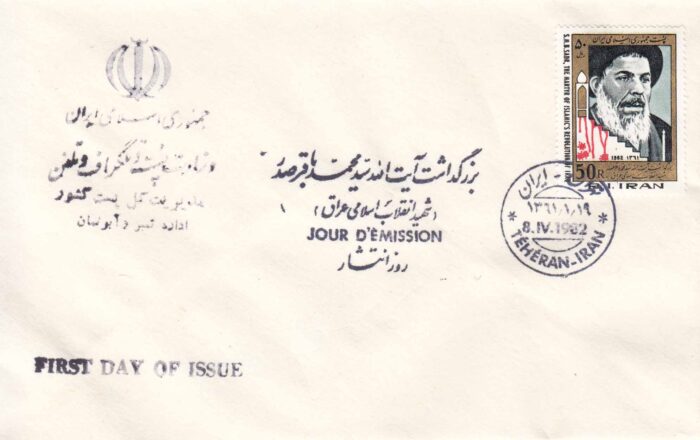 جمهوری اسلامی ایران
وزارت پست و تلگراف و تلفن
مدیریت کل پست کشور
اداره تمبر و آبونمان
بزرگداشت آیت الله سید محمد باقر صدر
(شهید انقلاب اسلامی عراق)
JOUR D'ÉMISSION
روز انتشار
FIRST DAY OF ISSUE
پست جمهوری اسلامی ایران
۵۰
ریال
S.M.B. SADR, THE MARTYR OF ISLAMIC'S REVOLUTION OF IRAQ
1982 ۱۳۶۱
50R
R.I.IRAN
ایران
۱۳۶۱/۱/۱۹
8.IV.1982
* TÉHÉRAN-IRAN *